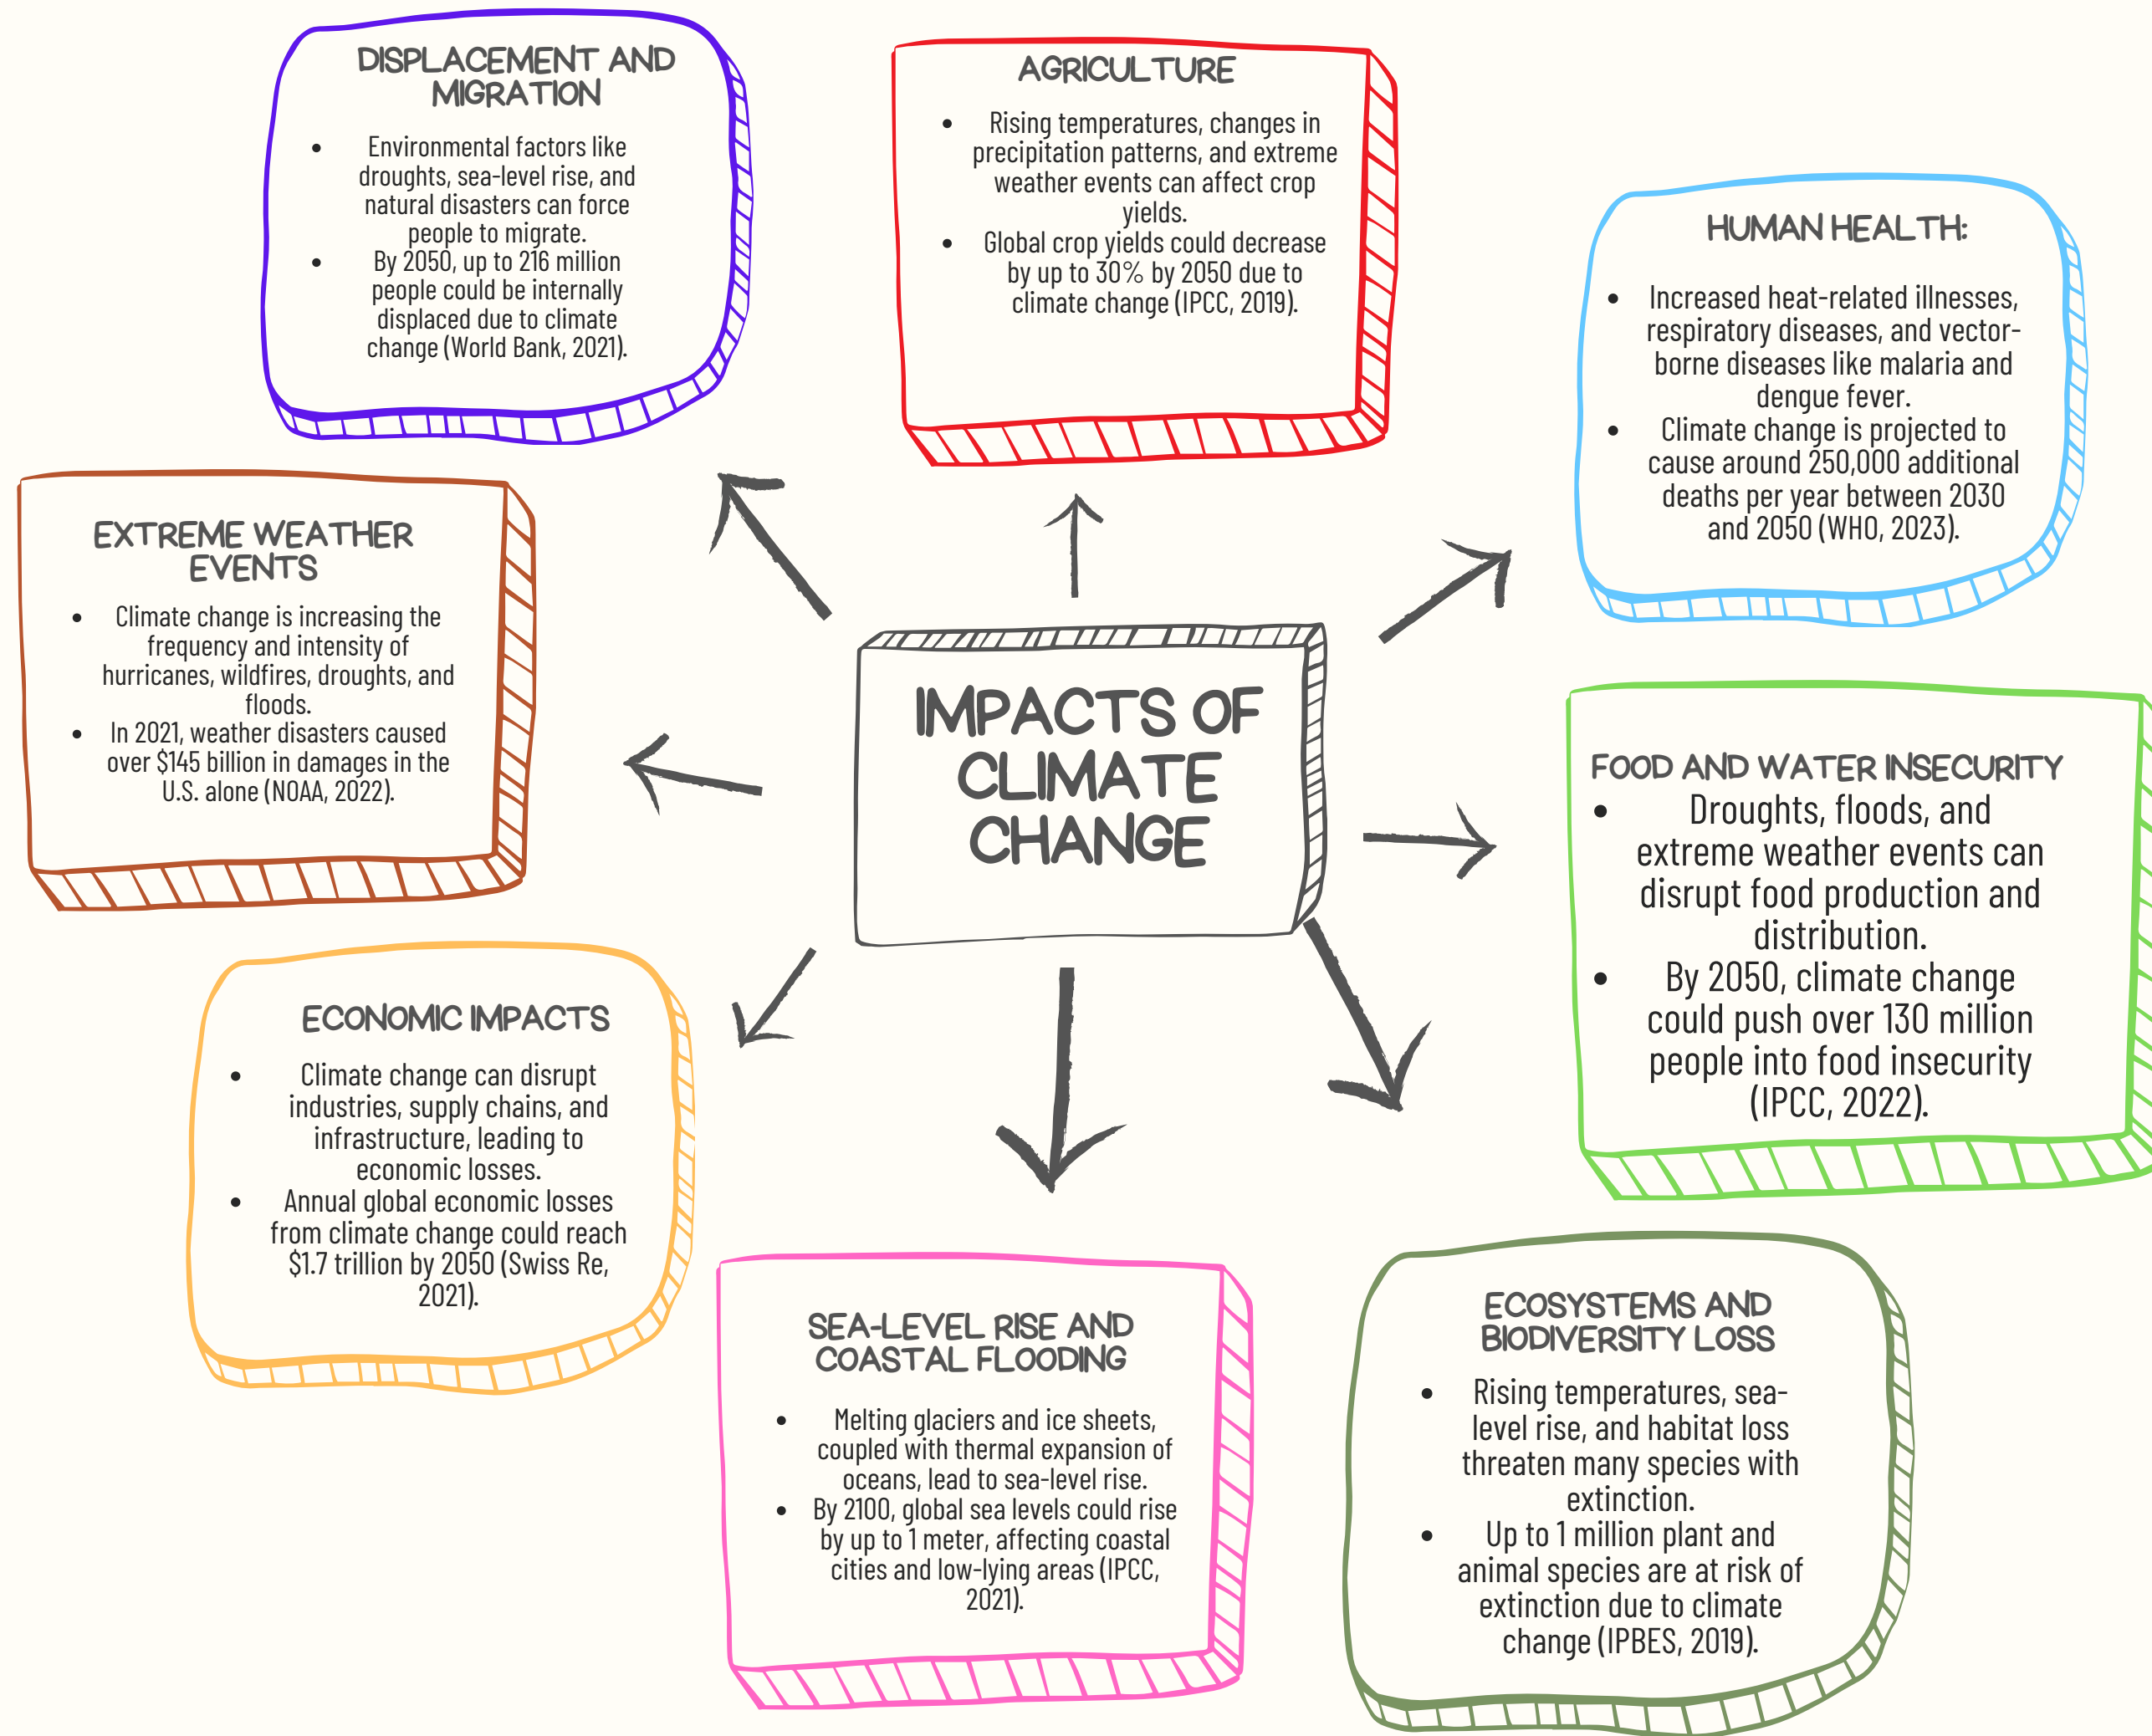 DISPLACEMENT AND
MIGRATION
• Environmental factors like
droughts, sea-level rise, and
natural disasters can force
people to migrate.
• By 2050, up to 216 million
people could be internally
displaced due to climate
change (World Bank, 2021).
AGRICULTURE
• Rising temperatures, changes in
precipitation patterns, and extreme
weather events can affect crop
yields.
• Global crop yields could decrease
by up to 30% by 2050 due to
climate change (IPCC, 2019).
HUMAN HEALTH:
• Increased heat-related illnesses,
respiratory diseases, and vector-
borne diseases like malaria and
dengue fever.
• Climate change is projected to
cause around 250,000 additional
deaths per year between 2030
and 2050 (WHO, 2023).
EXTREME WEATHER
EVENTS
• Climate change is increasing the
frequency and intensity of
hurricanes, wildfires, droughts, and
floods.
• In 2021, weather disasters caused
over $145 billion in damages in the
U.S. alone (NOAA, 2022).
IMPACTS OF
CLIMATE
CHANGE
FOOD AND WATER INSECURITY
• Droughts, floods, and
extreme weather events can
disrupt food production and
distribution.
• By 2050, climate change
could push over 130 million
people into food insecurity
(IPCC, 2022).
ECONOMIC IMPACTS
• Climate change can disrupt
industries, supply chains, and
infrastructure, leading to
economic losses.
• Annual global economic losses
from climate change could reach
$1.7 trillion by 2050 (Swiss Re,
2021).
SEA-LEVEL RISE AND
COASTAL FLOODING
• Melting glaciers and ice sheets,
coupled with thermal expansion of
oceans, lead to sea-level rise.
• By 2100, global sea levels could rise
by up to 1 meter, affecting coastal
cities and low-lying areas (IPCC,
2021).
ECOSYSTEMS AND
BIODIVERSITY LOSS
• Rising temperatures, sea-
level rise, and habitat loss
threaten many species with
extinction.
• Up to 1 million plant and
animal species are at risk of
extinction due to climate
change (IPBES, 2019).